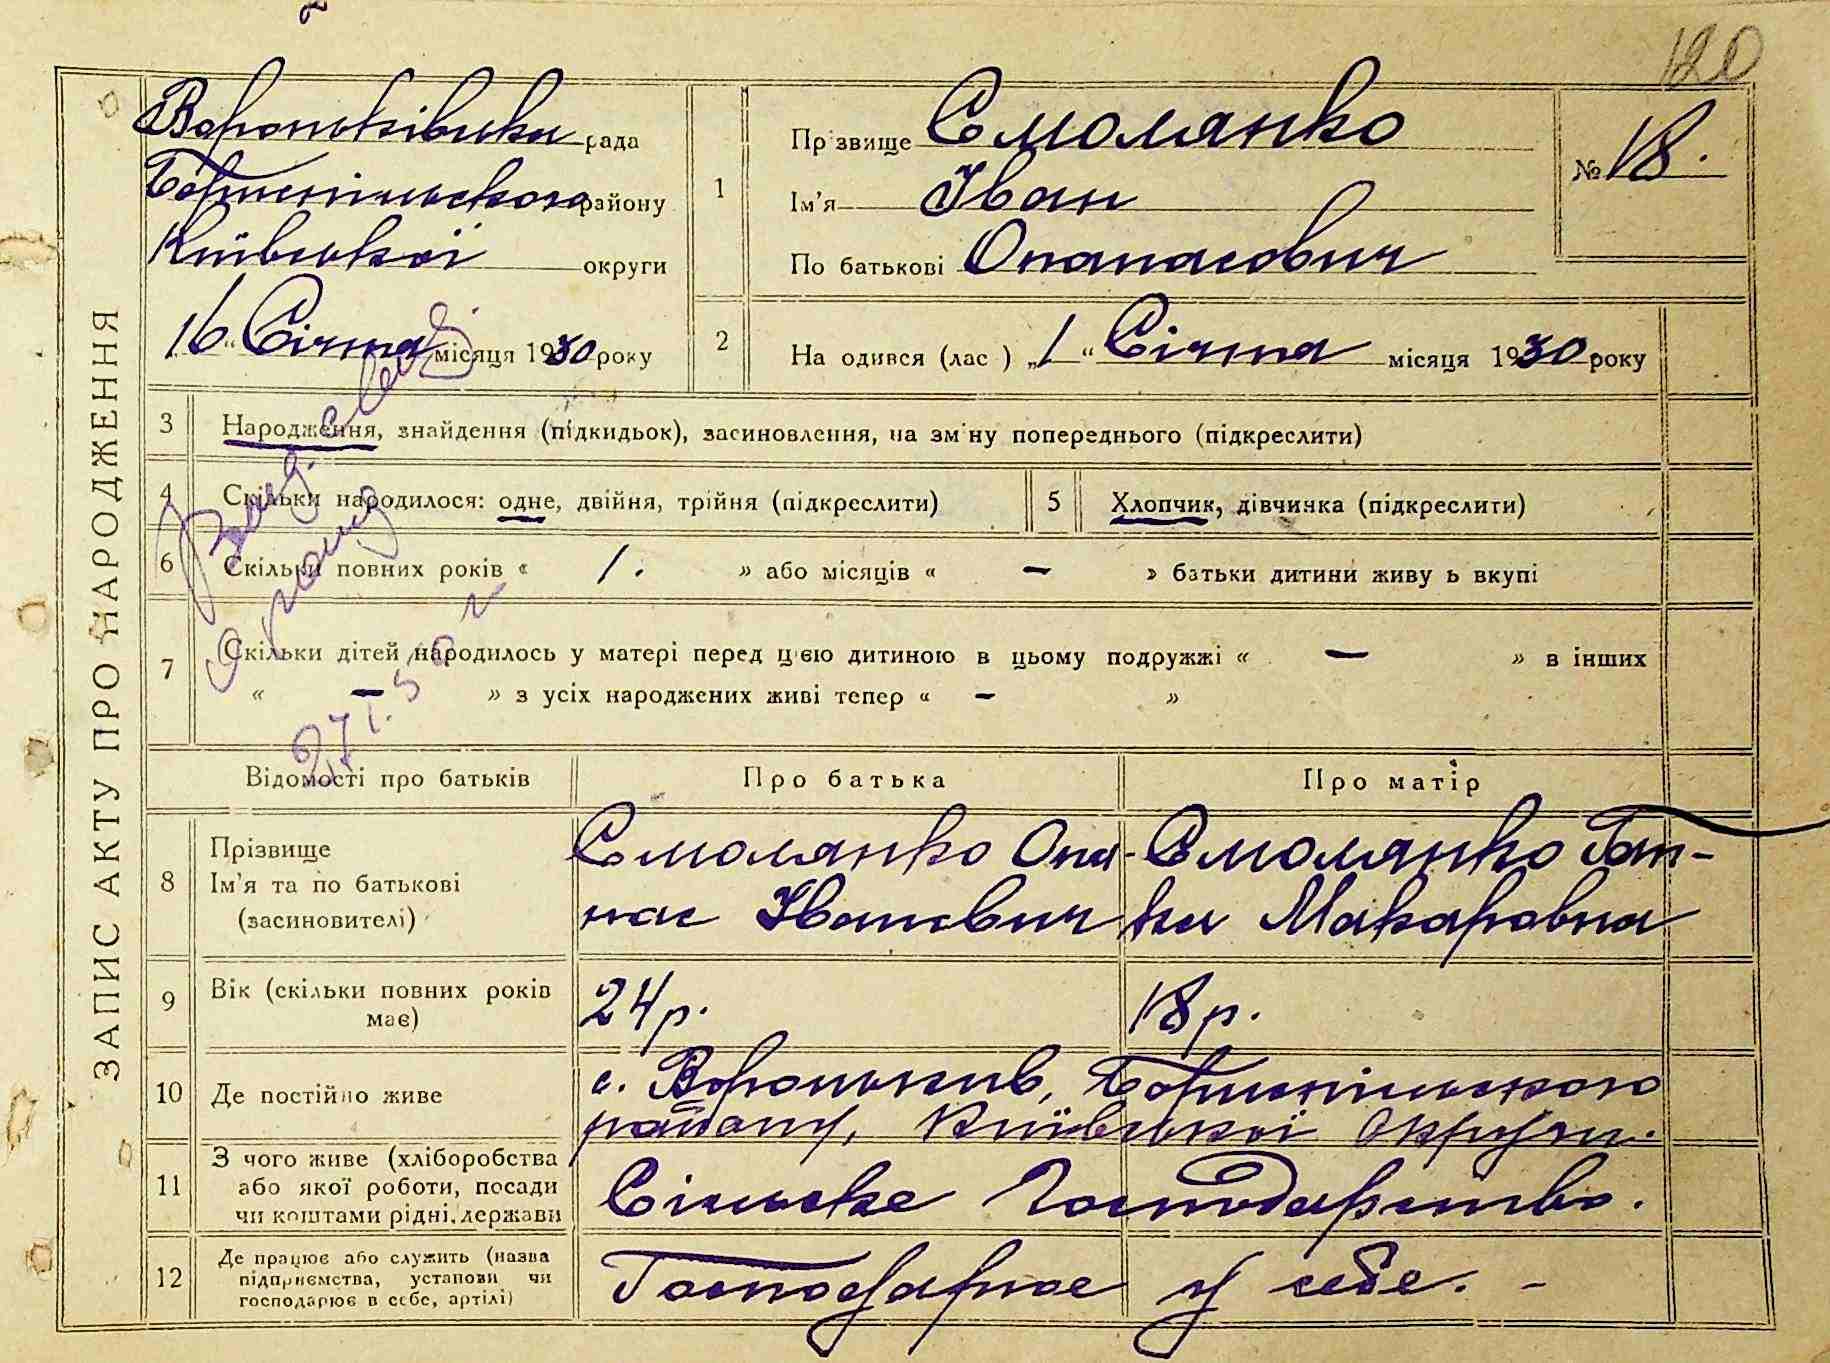 120
ЗАПИС АКТУ ПРО НАРОДЖЕННЯ
Вороньківська рада
Бориспільского району
Київської округи
16 „ Січня місяця 1930 року
1
Прізвище Смолянко
Ім'я Іван
По батькові Опанасович
№ 18.
2
На одився (лас ) „1“ Січня місяця 1930 року
3 Народження, знайдення (підкидьок), засиновлення, на зміну попереднього (підкреслити)
4 Скільки народилося: одне, двійня, трійня (підкреслити) 5 Хлопчик, дівчинка (підкреслити)
6 Скільки повних років « 1. » або місяців « — » батьки дитини живу ь вкупі
7 Скільки дітей народилось у матері перед цією дитиною в цьому подружжі « — » в інших
« — » з усіх народжених живі тепер « — »
27 І. 50 г
Відомості про батьків Про батька Про матір
8 Прізвище
Ім'я та по батькові
(засиновителі)
Смолянко Опа-
нас Іванович
Смолянко Ган-
на Макаровна
9 Вік (скільки повних років
має)
24 р.
18 р.
10 Де постійно живе
с. Вороньків, Бориспільського
району, Київської Округи.
11 З чого живе (хліборобства
або якої роботи, посади
чи коштами рідні, держави
Сільське Господарство.
12 Де працює або служить (назва
підприємства, установи чи
господарює в себе, артілі)
Господарює у себе. -